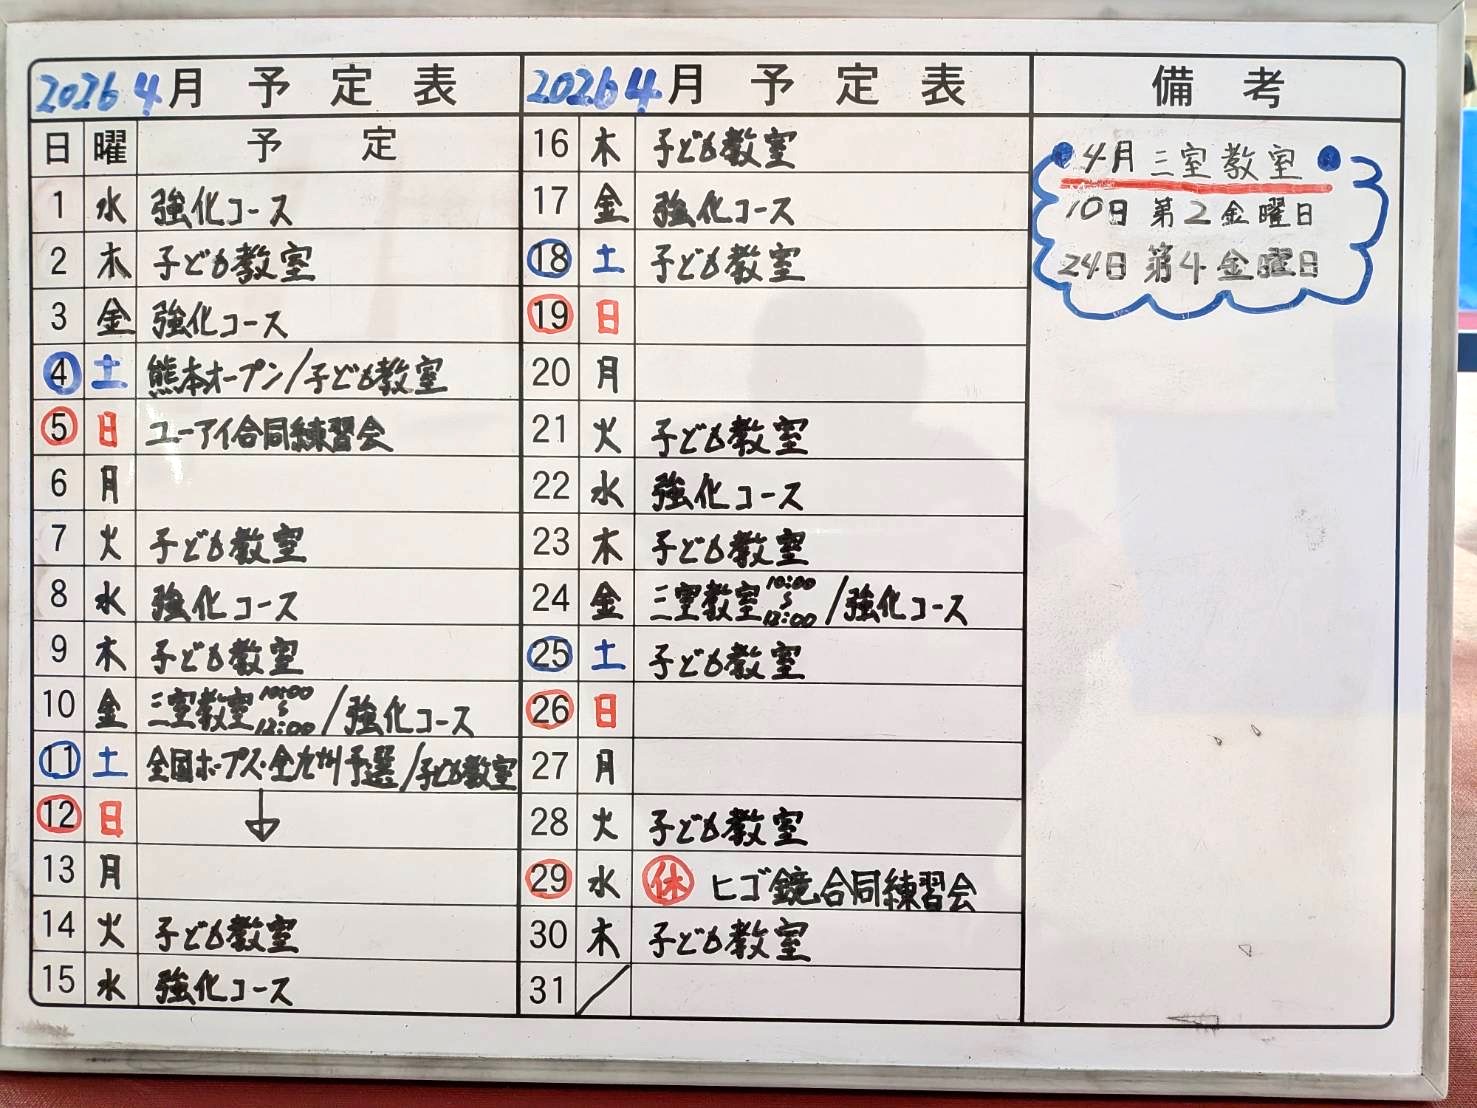 2026 4月 予定表
日 曜 予定
1 水 強化コース
2 木 子ども教室
3 金 強化コース
4 土 熊本オープン/子ども教室
5 日 ユーアイ合同練習会
6 月
7 火 子ども教室
8 水 強化コース
9 木 子ども教室
10 金 三室教室 10:00〜12:00 /強化コース
11 土 全国ホープス・全九州予選/子ども教室
12 日 ↓
13 月
14 火 子ども教室
15 水 強化コース
2026 4月 予定表
16 木 子ども教室
17 金 強化コース
18 土 子ども教室
19 日
20 月
21 火 子ども教室
22 水 強化コース
23 木 子ども教室
24 金 三室教室 10:00〜12:00 /強化コース
25 土 子ども教室
26 日
27 月
28 火 子ども教室
29 水 休 ヒゴ鏡合同練習会
30 木 子ども教室
31
備考
●4月三室教室●
10日 第2金曜日
24日 第4金曜日